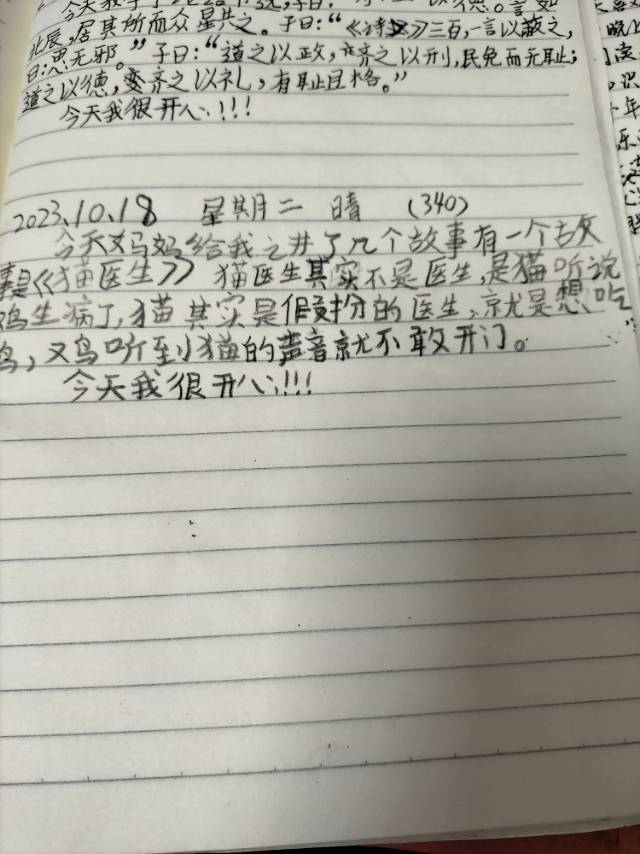 今天我学了《论语》
北辰,居其所而众星共之。子曰:“《诗》三百,一言以蔽之,
曰:思无邪。”子曰:“道之以政,齐之以刑,民免而无耻;
道之以德,齐之以礼,有耻且格。”
今天我很开心!!!
2023.10.18 星期二 晴 (340)
今天妈妈给我讲了几个故事有一个故
事是《猫医生》猫医生其实不是医生,是猫听说
鸡生病了,猫其实是假扮的医生,就是想吃
鸡,鸡听到猫的声音就不敢开门。
今天我很开心!!!